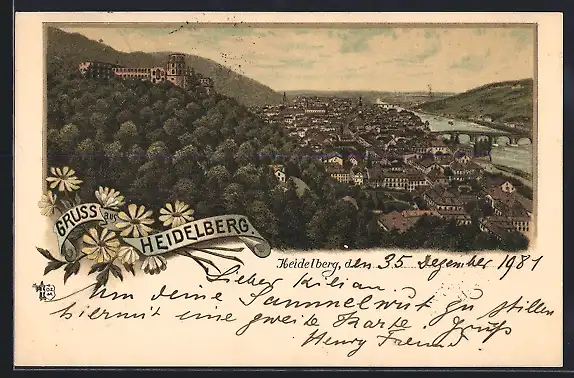 GRUSS aus
HEIDELBERG.
Heidelberg, den 35 Dezember 1981
Lieber Kilian.
Um deine Sammelwut zu stillen
hiermit eine zweite Karte Gruß
Henry Freund.